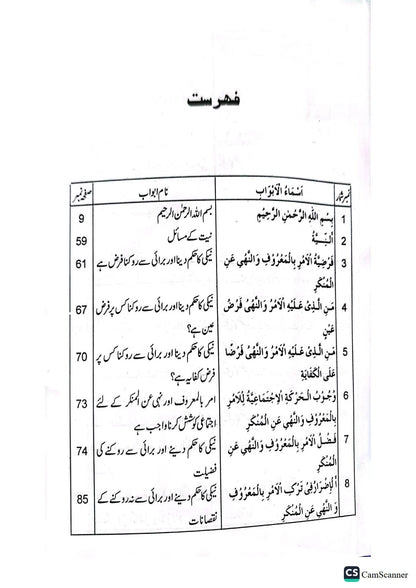 فہرست
نمبر شمار اَسْمَاءُ الْاَبْوَابِ نام ابواب صفحہ نمبر
1 بِسْمِ اللّٰهِ الرَّحْمٰنِ الرَّحِيْمِ بسم اللہ الرحمٰن الرحیم 9
2 اَلنِّيَّةُ نیت کے مسائل 59
3 فَرْضِيَّةُ الْاَمْرِ بِالْمَعْرُوْفِ وَالنَّهْىِ عَنِ نیکی کا حکم دینا اور برائی سے روکنا فرض ہے 61
الْمُنْكَرِ
4 مَنِ الَّذِىْ عَلَيْهِ الْاَمْرُ وَالنَّهْىُ فَرْضُ نیکی کا حکم دینا اور برائی سے روکنا کس پر فرض 67
عَيْنٍ عین ہے؟
5 مَنِ الَّذِىْ عَلَيْهِ الْاَمْرُ وَالنَّهْىُ فَرْضًا نیکی کا حکم دینا اور برائی سے روکنا کس پر 70
عَلَى الْكِفَايَةِ فرض کفایہ ہے؟
6 وُجُوْبُ الْحَرَكَةِ الْاِجْتِمَاعِيَّةِ لِلْاَمْرِ امر بالمعروف اور نہی عن المنکر کے لئے 73
بِالْمَعْرُوْفِ وَالنَّهْىِ عَنِ الْمُنْكَرِ اجتماعی کوشش کرنا واجب ہے
7 فَضْلُ الْاَمْرِ بِالْمَعْرُوْفِ وَالنَّهْىِ عَنِ نیکی کا حکم دینے اور برائی سے روکنے کی 74
الْمُنْكَرِ فضیلت
8 تَرْكِ الْاَمْرِ بِالْمَعْرُوْفِ نیکی کا حکم دینے اور برائی سے نہ روکنے کے 85
وَالنَّهْىِ عَنِ الْمُنْكَرِ نقصانات
CS CamScanner